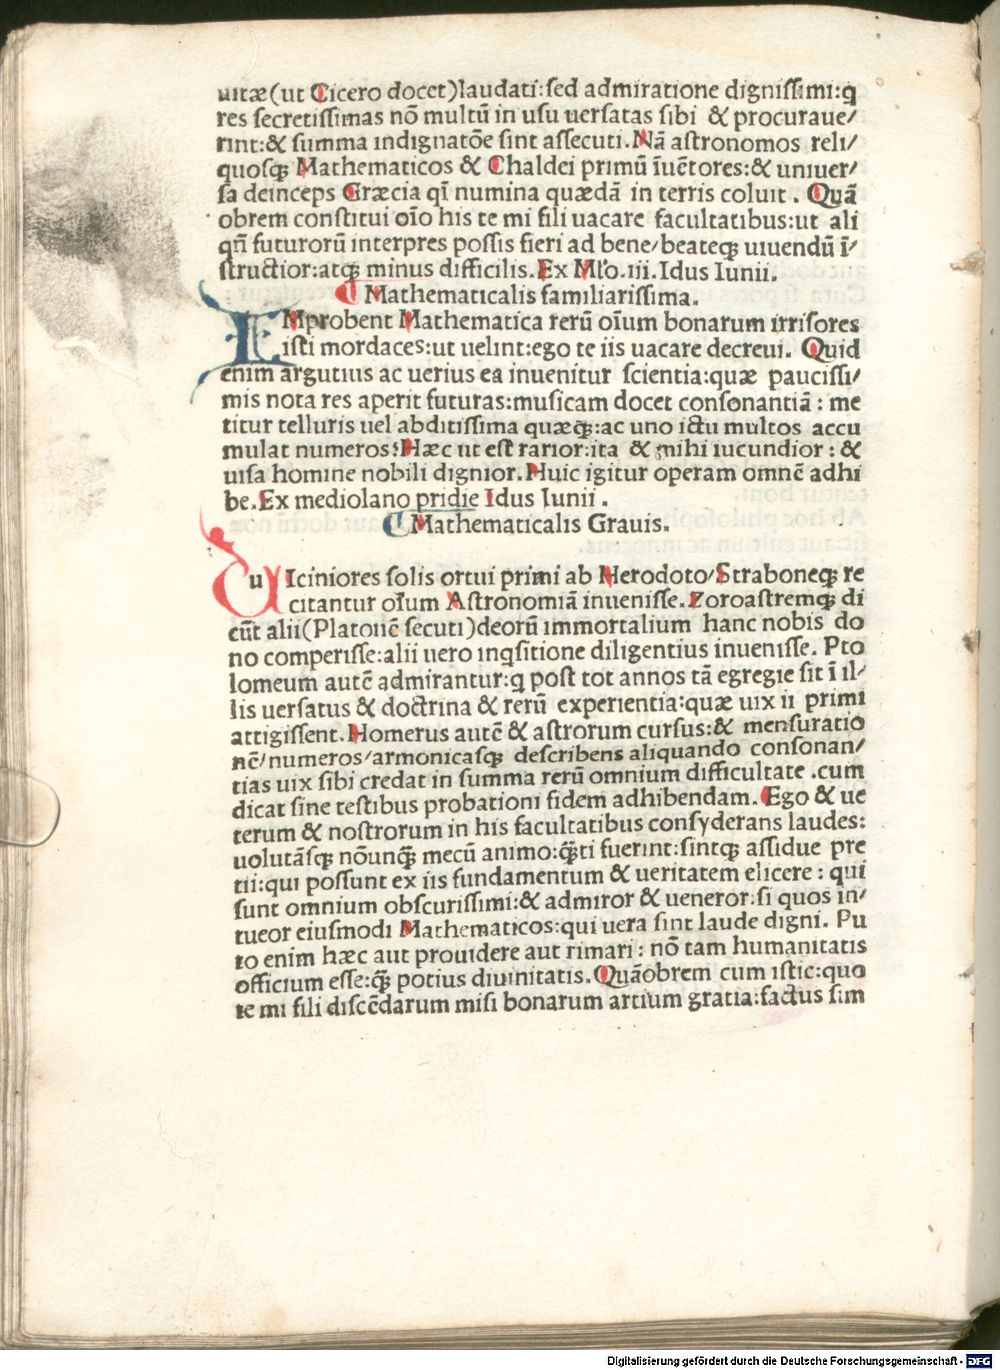 uitæ(ut Cicero docet)laudati:sed admiratione dignissimi:q
res secretissimas nō multū in usu uersatas sibi & procuraue/
rint:& summa indignatōe sint assecuti.Nā astronomos reli/
quosq; Mathematicos & Chaldei primū īuētores:& uniuer/
sa deinceps Græcia qī numina quædā in terris coluit. Quā
obrem constitui oīo his te mi fili uacare facultatibus:ut ali
qñ futurorū interpres possis fieri ad bene/beateq; uiuendū ī/
structior:atq; minus difficilis.Ex Mlo.iii.Idus Iunii.
Mathematicalis familiarissima.
IMprobent Mathematica rerū oīum bonarum irrisores
isti mordaces:ut uelint:ego te iis uacare decreui. Quid
enim argutius ac uerius ea inuenitur scientia:quæ paucissi/
mis nota res aperit futuras:musicam docet consonantiā: me
titur telluris uel abditissima quæq;:ac uno ictu multos accu
mulat numeros?Hæc ut est rarior:ita & mihi iucundior: &
uisa homine nobili dignior.Huic igitur operam omnē adhi
be.Ex mediolano pridie Idus Iunii.
Mathematicalis Grauis.
Uu Iciniores solis ortui primi ab Herodoto/Straboneq; re
citantur oīum Astronomiā inuenisse.Zoroastremq; di
cūt alii(Platonē secuti)deorū immortalium hanc nobis do
no comperisse:alii uero inqsitione diligentius inuenisse. Pto
lomeum autē admirantur:q post tot annos tā egregie sit ī il/
lis uersatus & doctrina & rerū experientia:quæ uix ii primi
attigissent.Homerus autē & astrorum cursus:& mensuratio
nē/numeros/armonicasq; describens aliquando consonan/
tias uix sibi credat in summa rerū omnium difficultate.cum
dicat sine testibus probationi fidem adhibendam.Ego & ue
terum & nostrorum in his facultatibus consyderans laudes:
uolutāsq; nōunq̄ mecū animo:q̄ti fuerint:sintq; assidue pre
tii:qui possunt ex iis fundamentum & ueritatem elicere: qui
sunt omnium obscurissimi:& admiror & ueneror:si quos in/
tueor eiusmodi Mathematicos:qui uera sint laude digni. Pu
to enim hæc aut prouidere aut rimari: nō tam humanitatis
officium esse:q̄ potius diuinitatis.Quāobrem cum istic:quo
te mi fili discēdarum misi bonarum artium gratia:factus sim
Digitalisierung gefördert durch die Deutsche Forschungsgemeinschaft - DFG